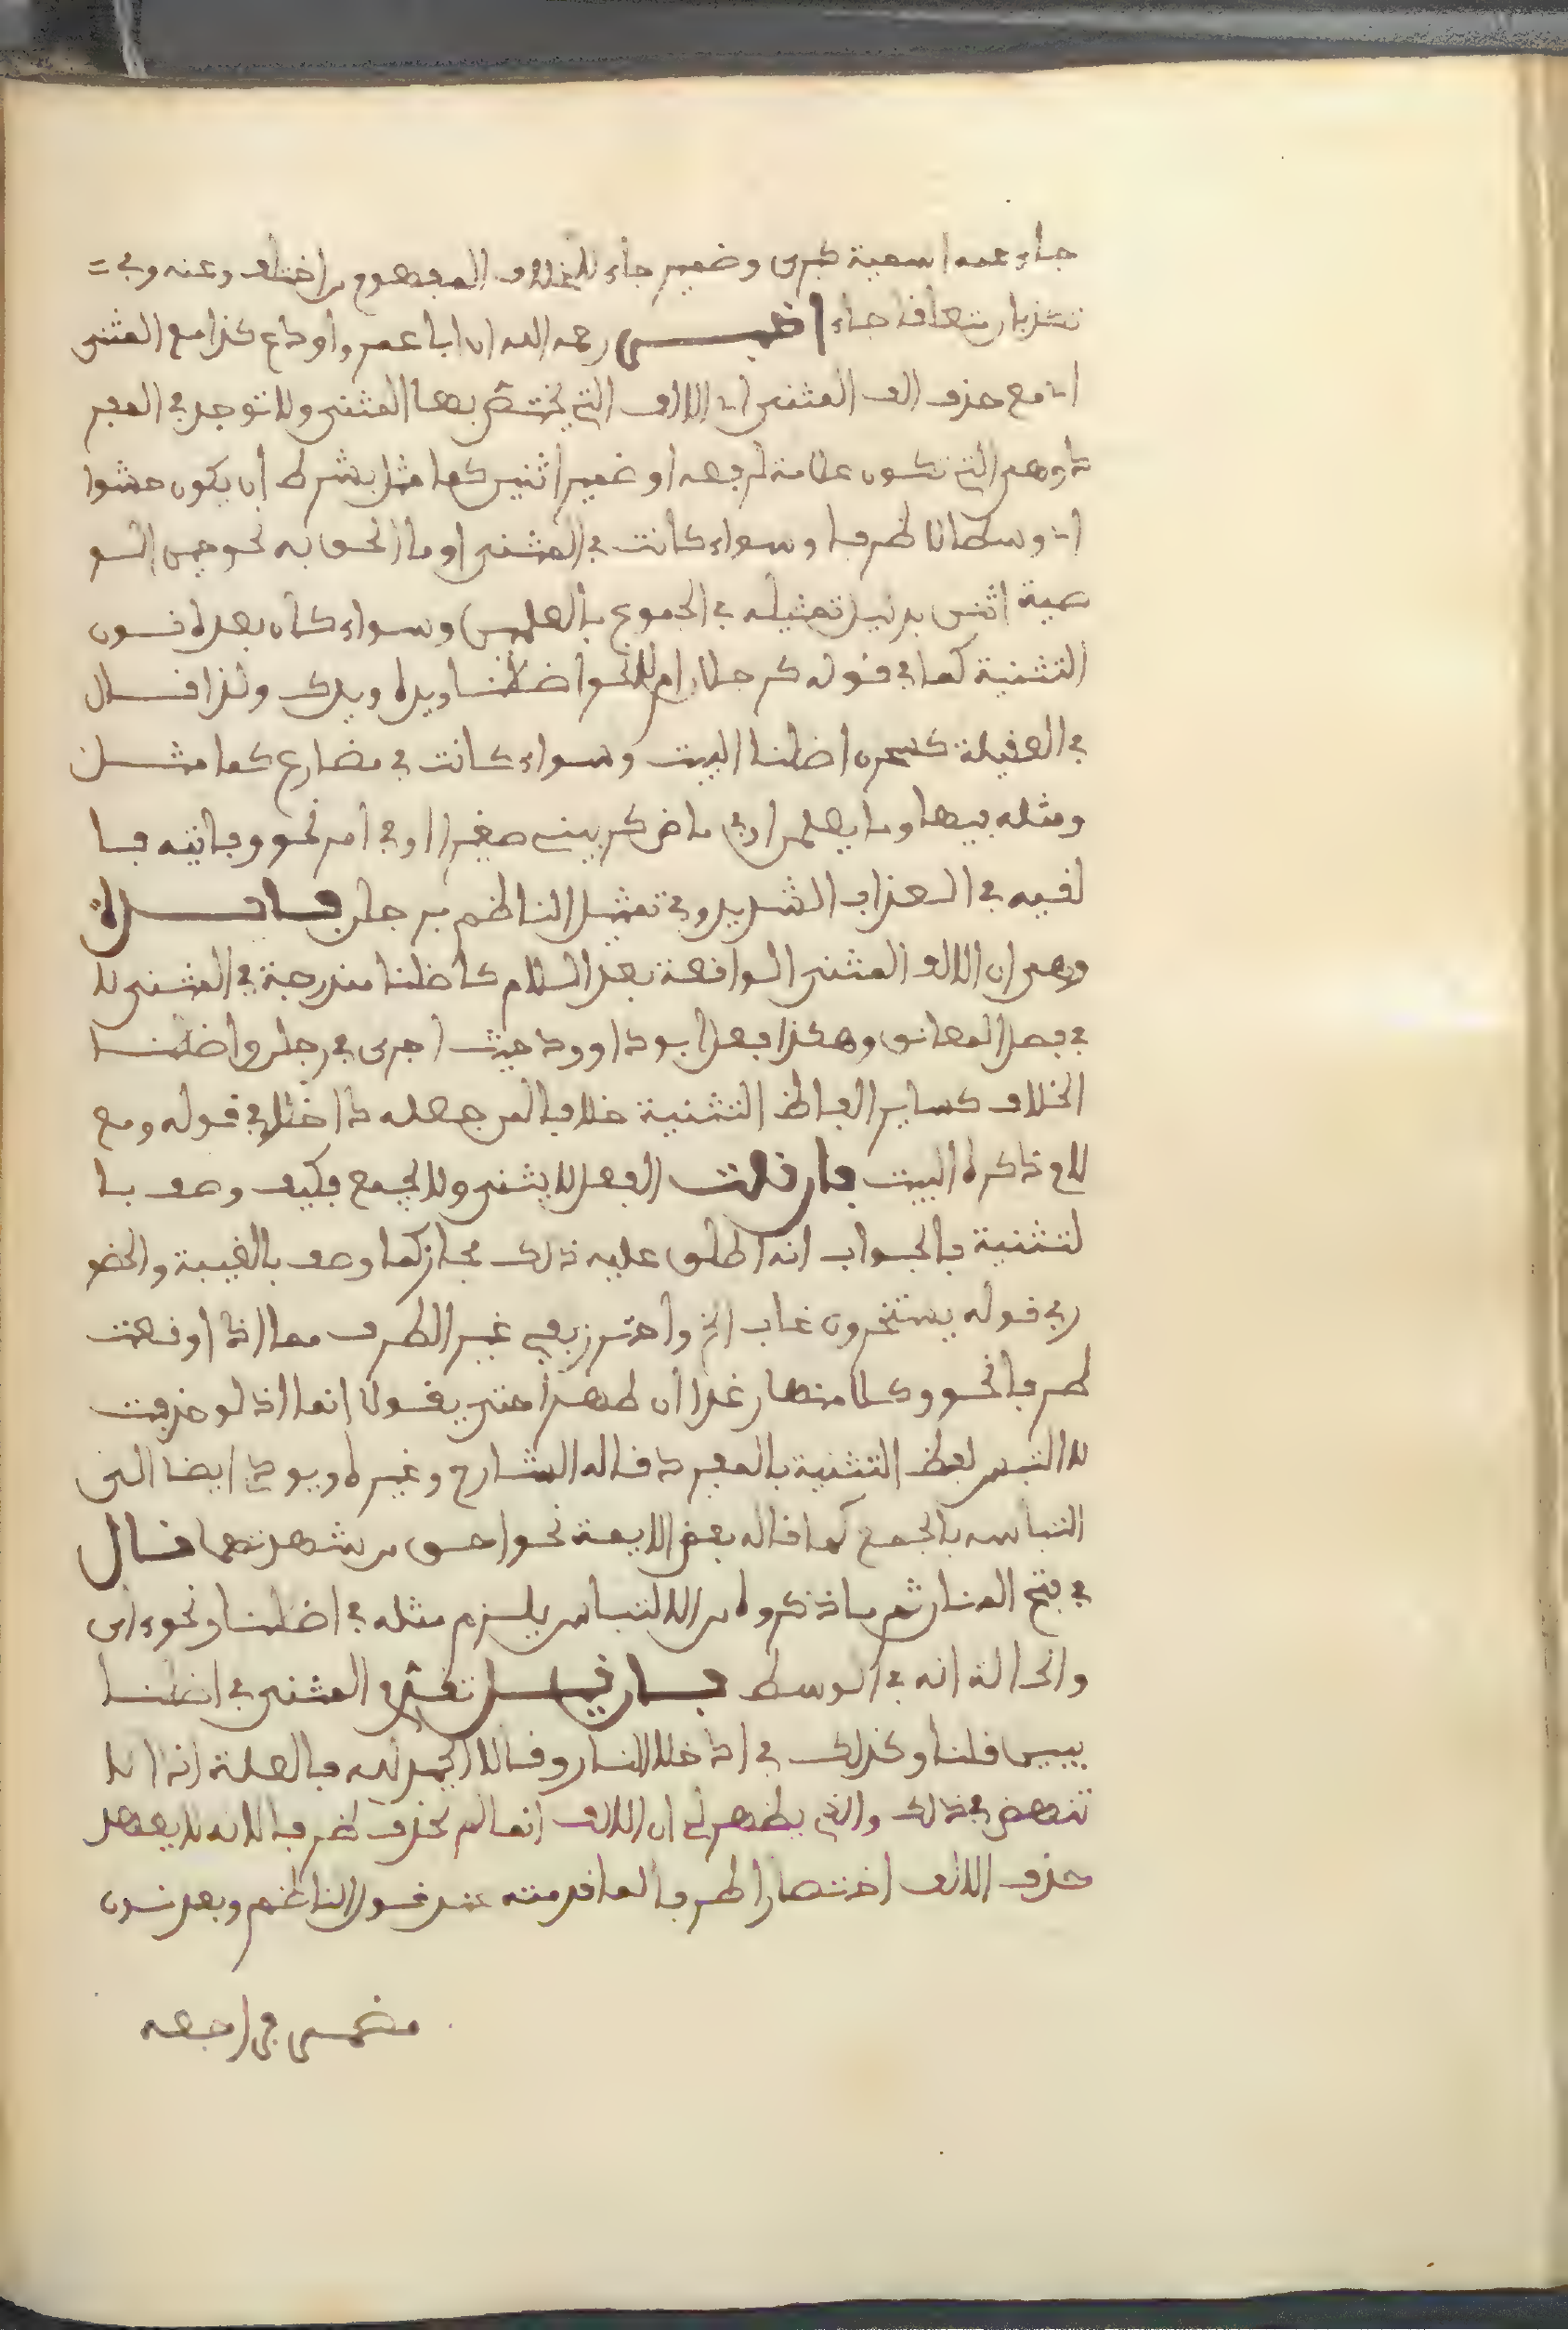 جاء عنه اسمية كبرى وضمير جاء للخلاف المفهوم من اختلف وعنه وفي =
تكذبان متعلقا جاء اخبر رحمه الله ان ابا عمرو اوداع كذا مع المثنى
اي مع حذف الف المثنى اي الالف التي يختص بها المثنى ولا توجد في المفر
د وهي التي تكون علامة لرفعه او ضمير اثنين كما مثل بشرط ان يكون حشوا
اي وسطا لا طرفا وسواء كانت في المثنى او ما الحق به نحو حين الو
صية اثنن بدليل تمثيله في الجموع بالعلمين وسواء كان بعده نون
التثنية كما في قوله كرجلان ام لا نحو اضلنا ويداه ويدك ولذا قال
في العقيلة كسحرن اضلنا البيت وسواء كانت في مضارع كما مثل
ومثله فيها وما يعلمن او في ماض كربيني صغيرا او في امر نحو وفاتيه فا
لقيه في العذاب الشديد وفي تمثيل الناظم برجلن فائدة
وهي ان الالف المثنى الواقعة بعد اللام كاضلنا مندرجة في المثنى لا
في فصل المعانق وهكذا فعل ابو داوود حيث اجرى في رجلن واضلنا
الخلاف كساير الفاظ التثنية خلافا لمن جعله داخلا في قوله ومع
لام ذكره البيت فان قلت الفعل لا يثنى ولا يجمع فكيف وصف با
لتثنية فالجواب انه اطلق عليه ذلك مجاز كما وصف بالغيبة والخضو
ر في قوله يستخرون غاب الخ واحترز بقي غير الطرف مما اذا وقعت
طرفا نحو وكلا منها رغدا ان طهرا حتى يقولا انما اذ لو حذفت
لا التبس لفظ التثنية بالمفرد قاله الشارح وغيره ويودي ايضا الى
التباسه بالجمع كما قاله بعض الايمة نحو احق من شهدتهما قال
في فتح المنان ثم ما ذكروه من الالتباس يلزم مثله في اضلنا ونحوه اي
والحالة انه في الوسط فان قيل تقدم المثنى في اضلنا
يبين قلنا وكذلك في ادخلا النار وقالا الحمد لله فالعلة اذا لا
تنهض في ذلك والذي يظهر لي ان الالف انما لم تحذف طرفا لانه لا يعهد
حذف الالف اختصارا طرفا لما قدمته عند قول الناظم وبعد نون
مضمر في راجعه